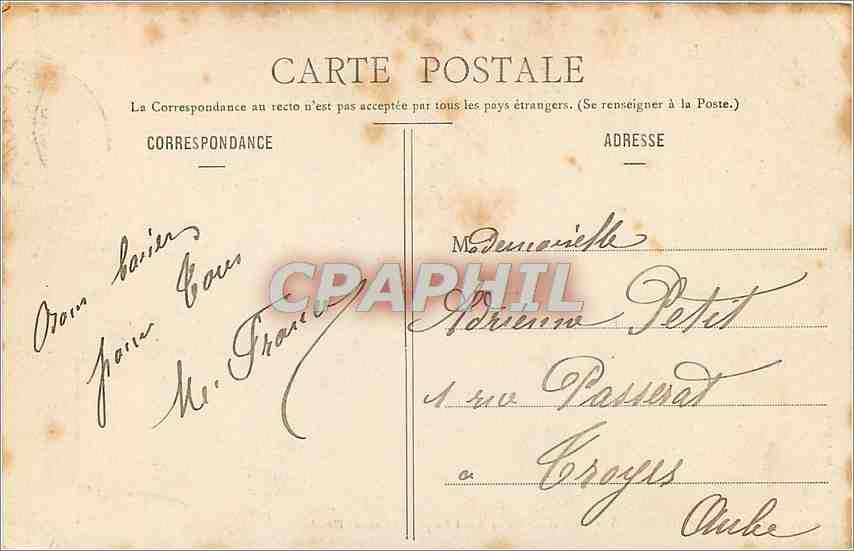 CARTE POSTALE
La Correspondance au recto n'est pas acceptée par tous les pays étrangers. (Se renseigner à la Poste.)
CORRESPONDANCE
Bons baisers
pour Tous
M. Franc
ADRESSE
Mademoiselle
Adrienne Petit
1 rue Passerat
a Troyes
Aube
CPAPHIL